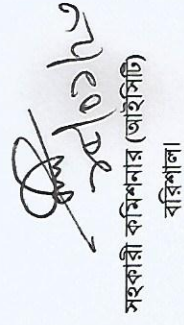 সহকারী কমিশনার (আইসিটি)
বরিশাল।